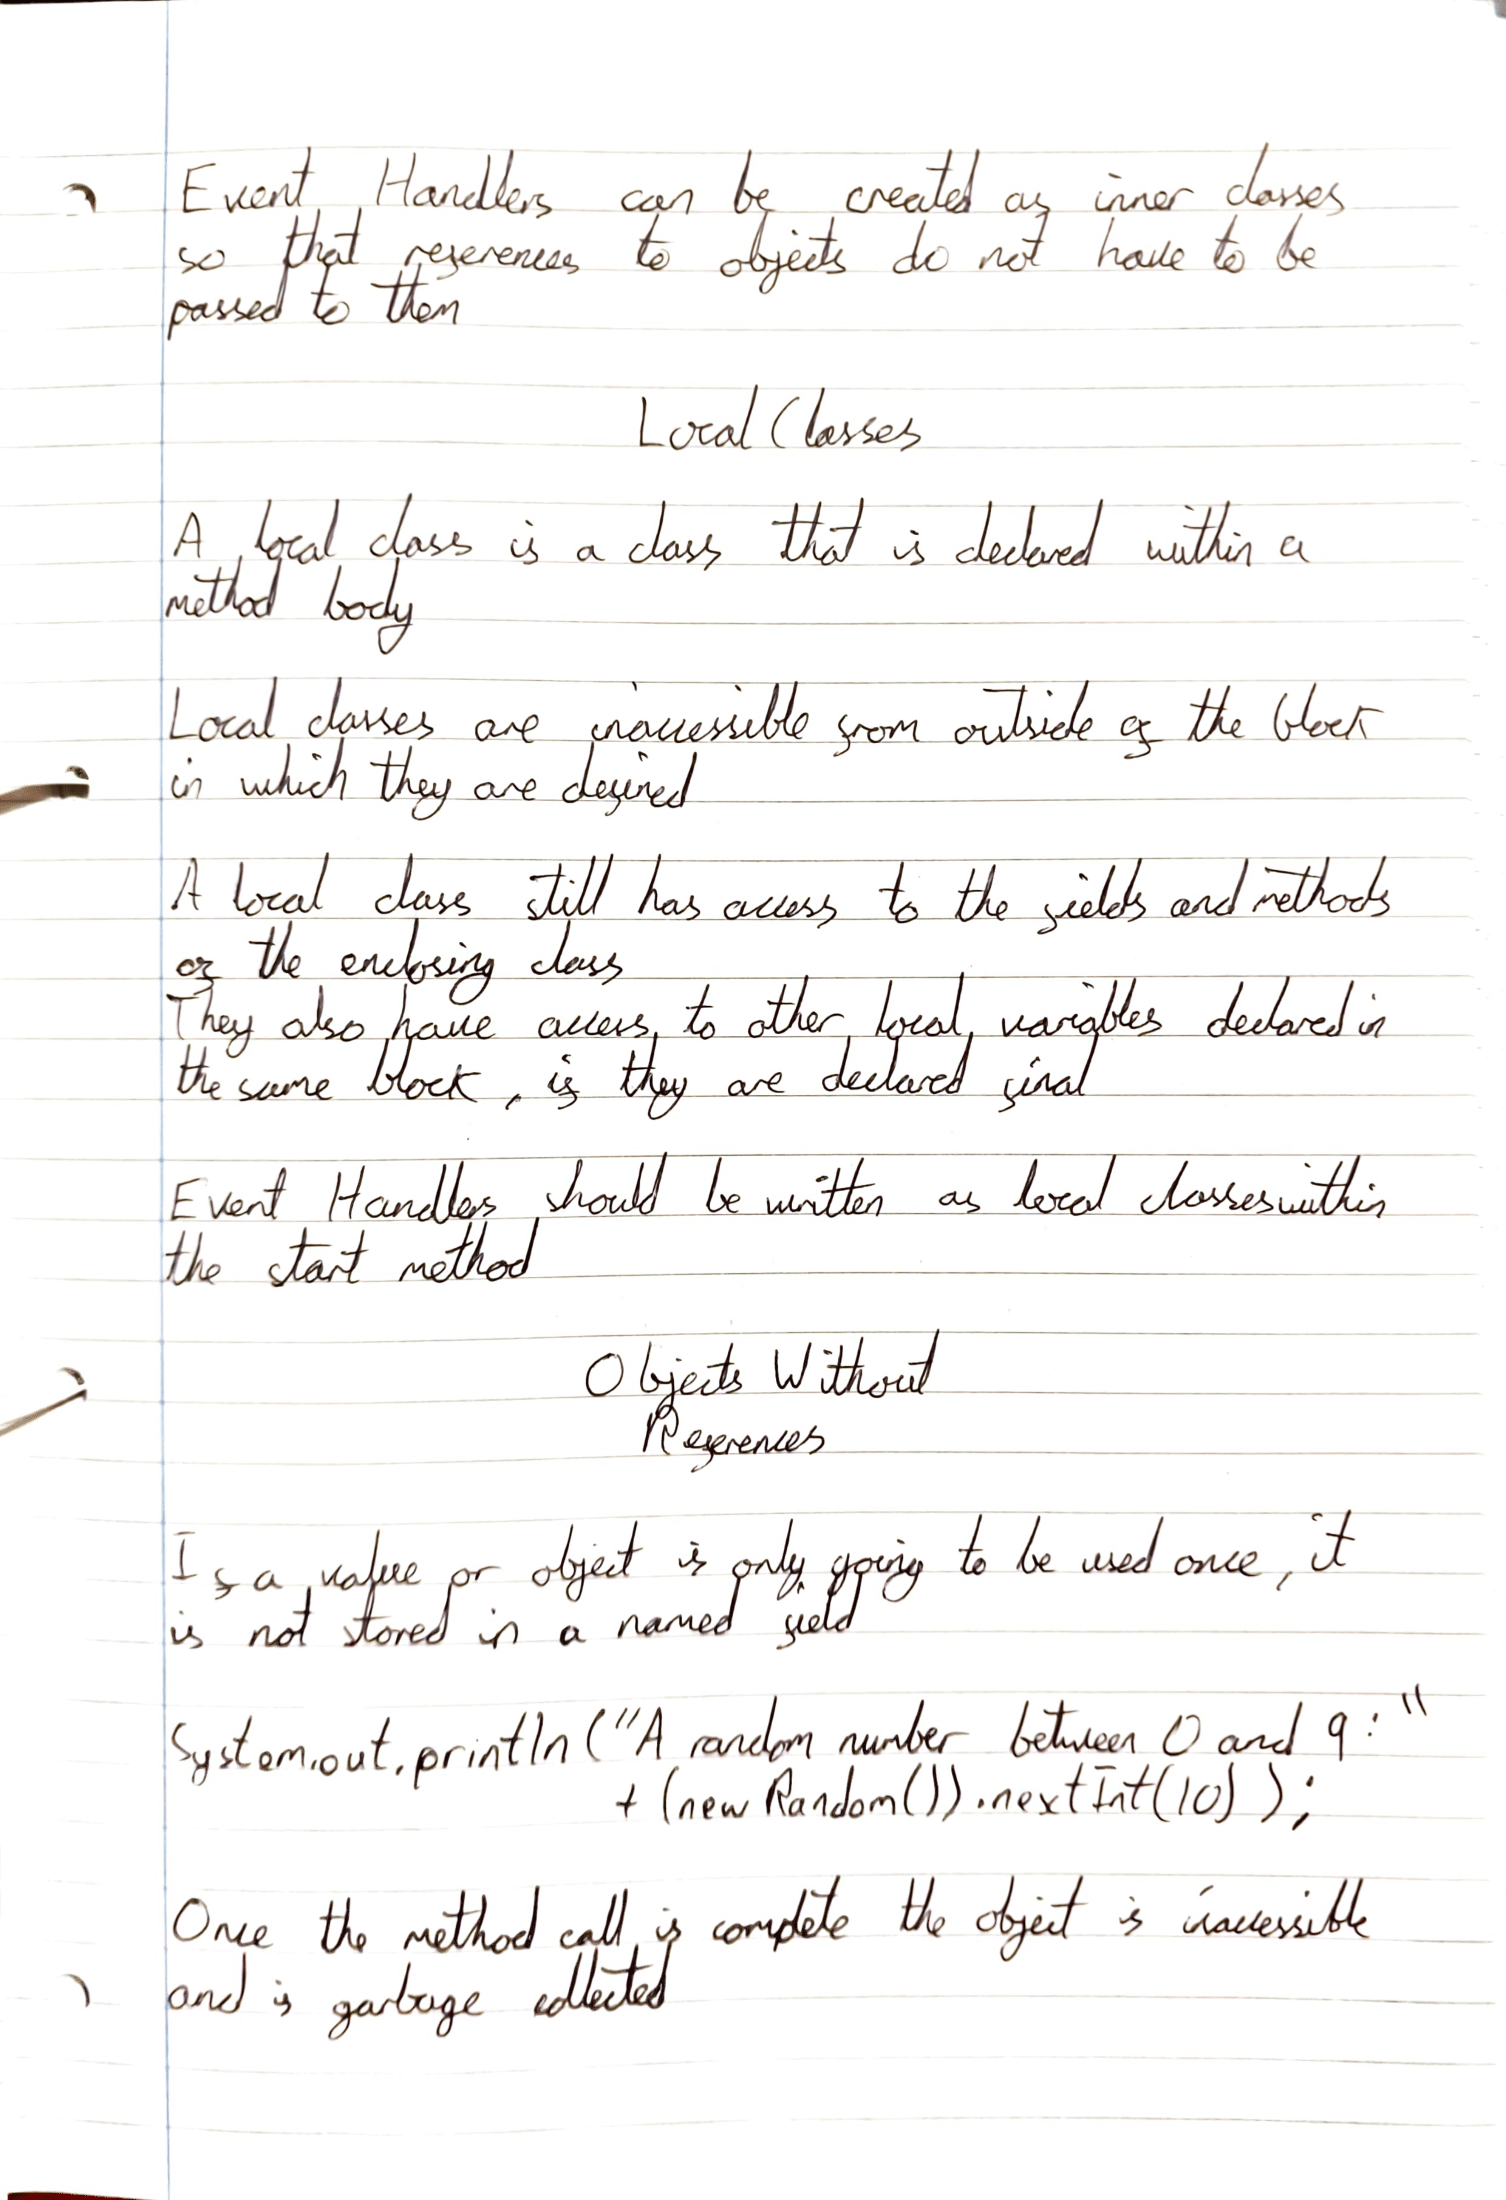 Event Handlers can be created as inner classes
so that references to objects do not have to be
passed to them
Local Classes
A local class is a class that is declared within a
method body
Local classes are inaccessible from outside of the block
in which they are defined
A local class still has access to the fields and methods
of the enclosing class
They also have access to other local variables declared in
the same block, if they are declared final
Event Handlers should be written as local classes within
the start method
Objects Without
References
If a value or object is only going to be used once, it
is not stored in a named field
System.out.println("A random number between 0 and 9: "
+ (new Random()).nextInt(10) );
Once the method call is complete the object is inaccessible
and is garbage collected